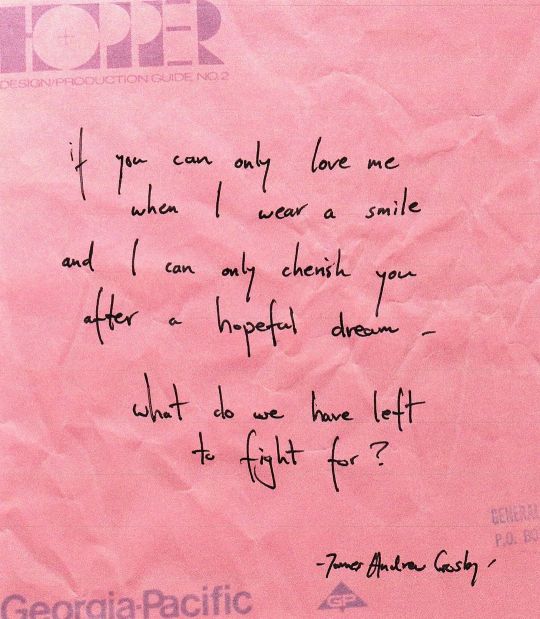 HOPPER
DESIGN/PRODUCTION GUIDE, NO. 2
if you can only love me
when I wear a smile
and I can only cherish you
after a hopeful dream –
what do we have left
to fight for?
GENERAL
P.O. BO
- Turner Andrew Crosby -
Georgia-Pacific
GP